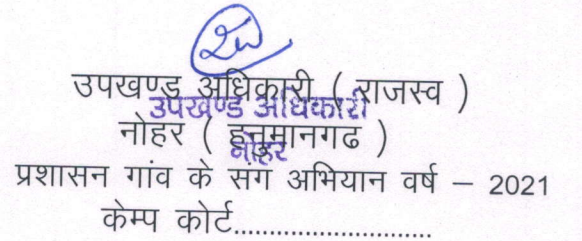 उपखण्ड अधिकारी ( राजस्व )
उपखण्ड अधिकारी
नोहर ( हनुमानगढ )
नोहर
प्रशासन गांव के संग अभियान वर्ष – 2021
केम्प कोर्ट..............................